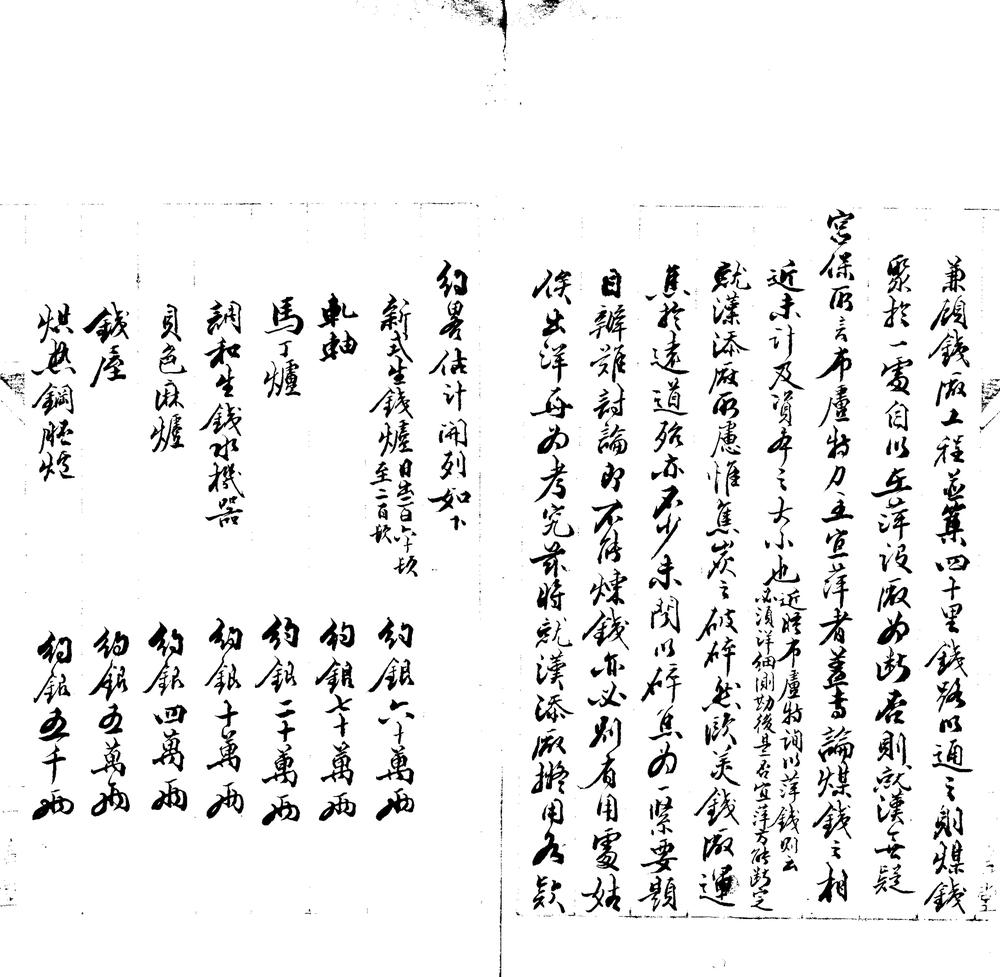 兼顧鐵廠工程並築四十里鐵路以通之則煤鐵
聚於一處自以在萍設廠為斷否則就漢無疑
宮保所言布盧特力主宜萍者蓋專論煤鐵之相
近未計及資本之大小也近勝布盧特詢以萍鐵則云必須詳細測勘後其是否宜萍方能斷定
就漢添廠所慮惟焦炭之破碎然歐美鐵廠運
焦於遠道殆亦不少未聞以碎焦為一緊要題
目辦難討論即不能煉鐵亦必別有用處姑
俟出洋再為考究茲將就漢添廠擬用各款
約畧估計開列如下
新式生鐵爐日出一百六十噸至二百噸 約銀六十萬兩
軋軸 約銀七十萬兩
馬丁爐 約銀二十萬兩
調和生鐵水機器 約銀十萬兩
貝色麻爐 約銀四萬兩
錢座 約銀五萬兩
烘熱鋼胚爐 約銀五千兩